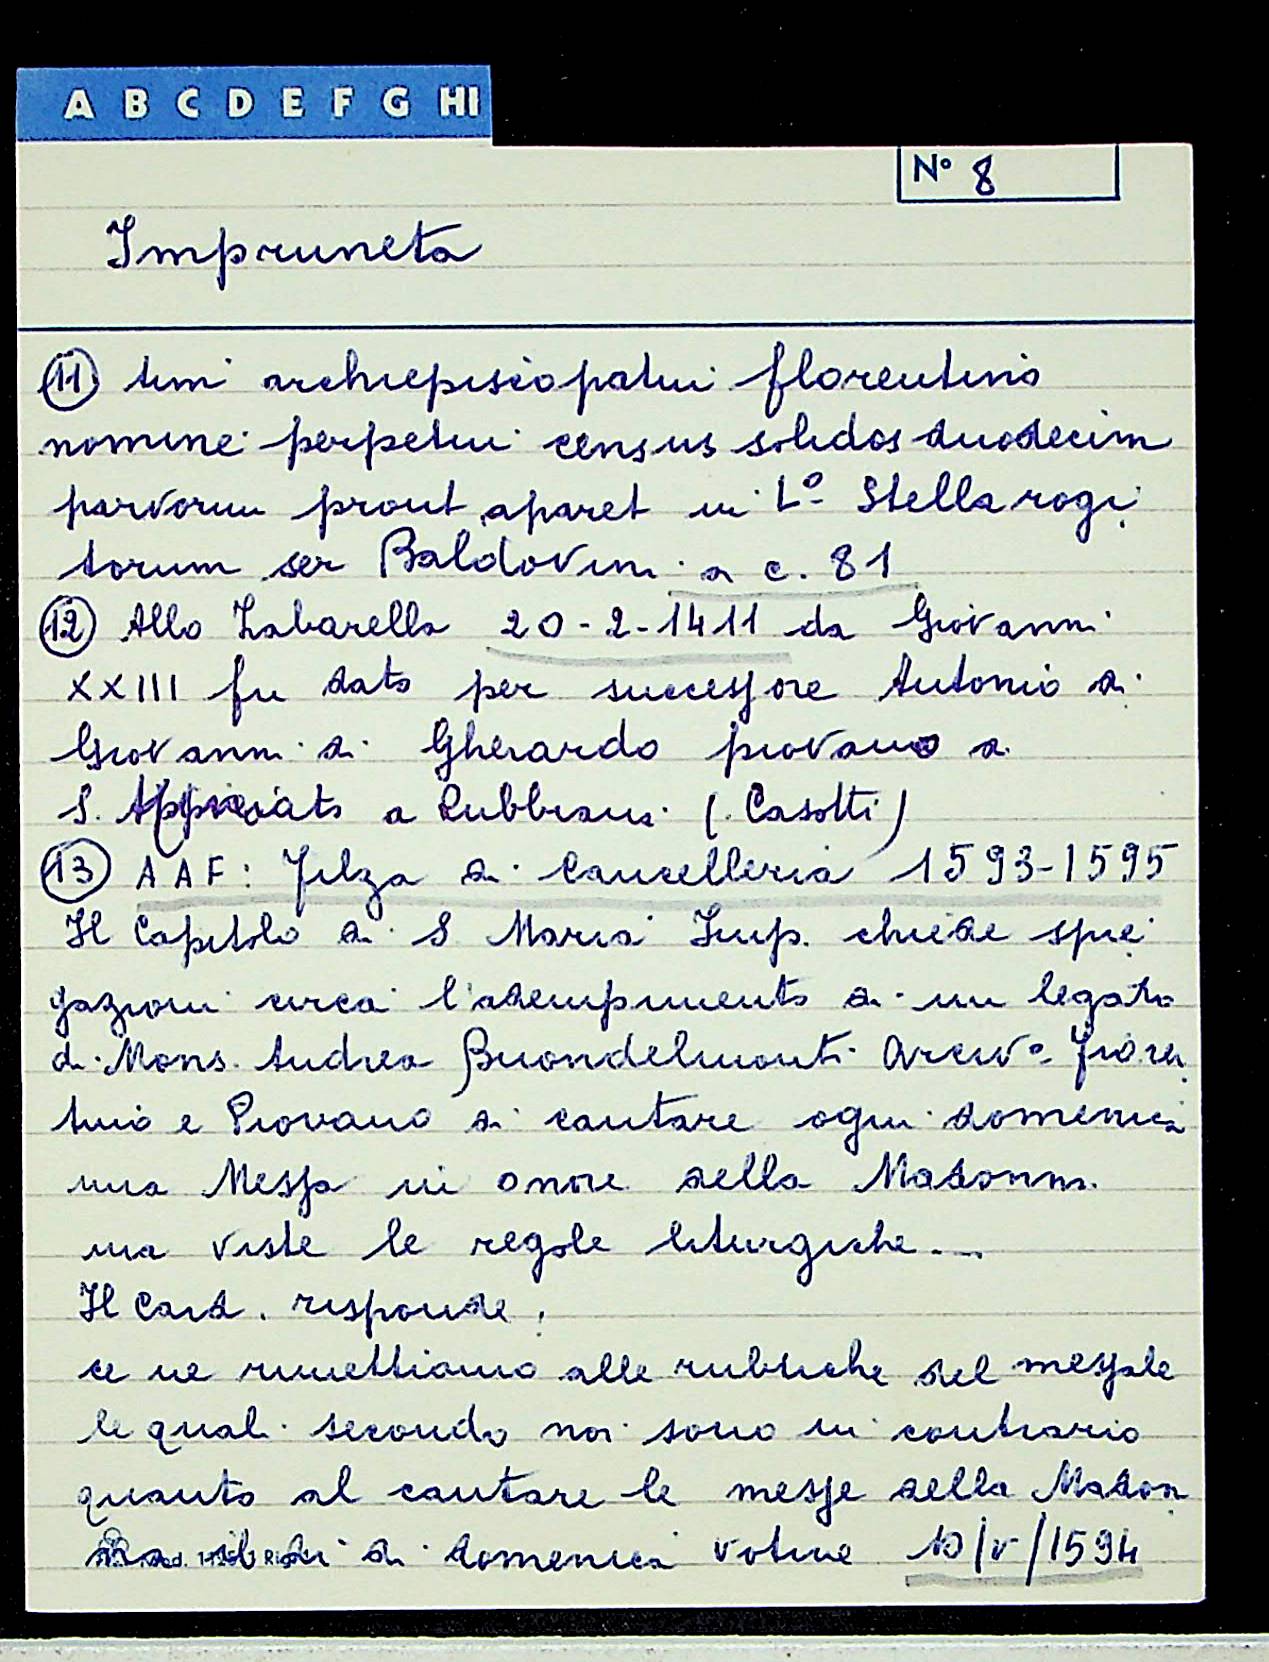 A B C D E F G HI
N° 8
Impruneta
(11) timi archiepiscopatui florentino
nomine perpetui census solidos duodecim
parvorum prout aparet in L° Stella rogi
torum ser Baldovini a c. 81
(12) Allo Zabarella 20-2-1411 da Giovanni
XXIII fu dato per successore Antonio di
Giovanni di Gherardo piovano di
S. a Rubbiana (Casotti)
(13) A A F: Filza di Cancelleria 1593-1595
Il Capitolo di S Maria Imp. chiede spie
gazioni circa l'adempimento di un legato
di Mons. Andrea Buondelmonti Arciv° Fioren
tino e Piovano di cantare ogni domenica
una Messa in onore della Madonna.
ma viste le regole liturgiche...
Il Card. risponde:
ce ne rimettiamo alle rubriche del messale
le quali secondo noi sono in contrario
quanto al cantare le messe della Madon
na di domenica votive 10/V/1594